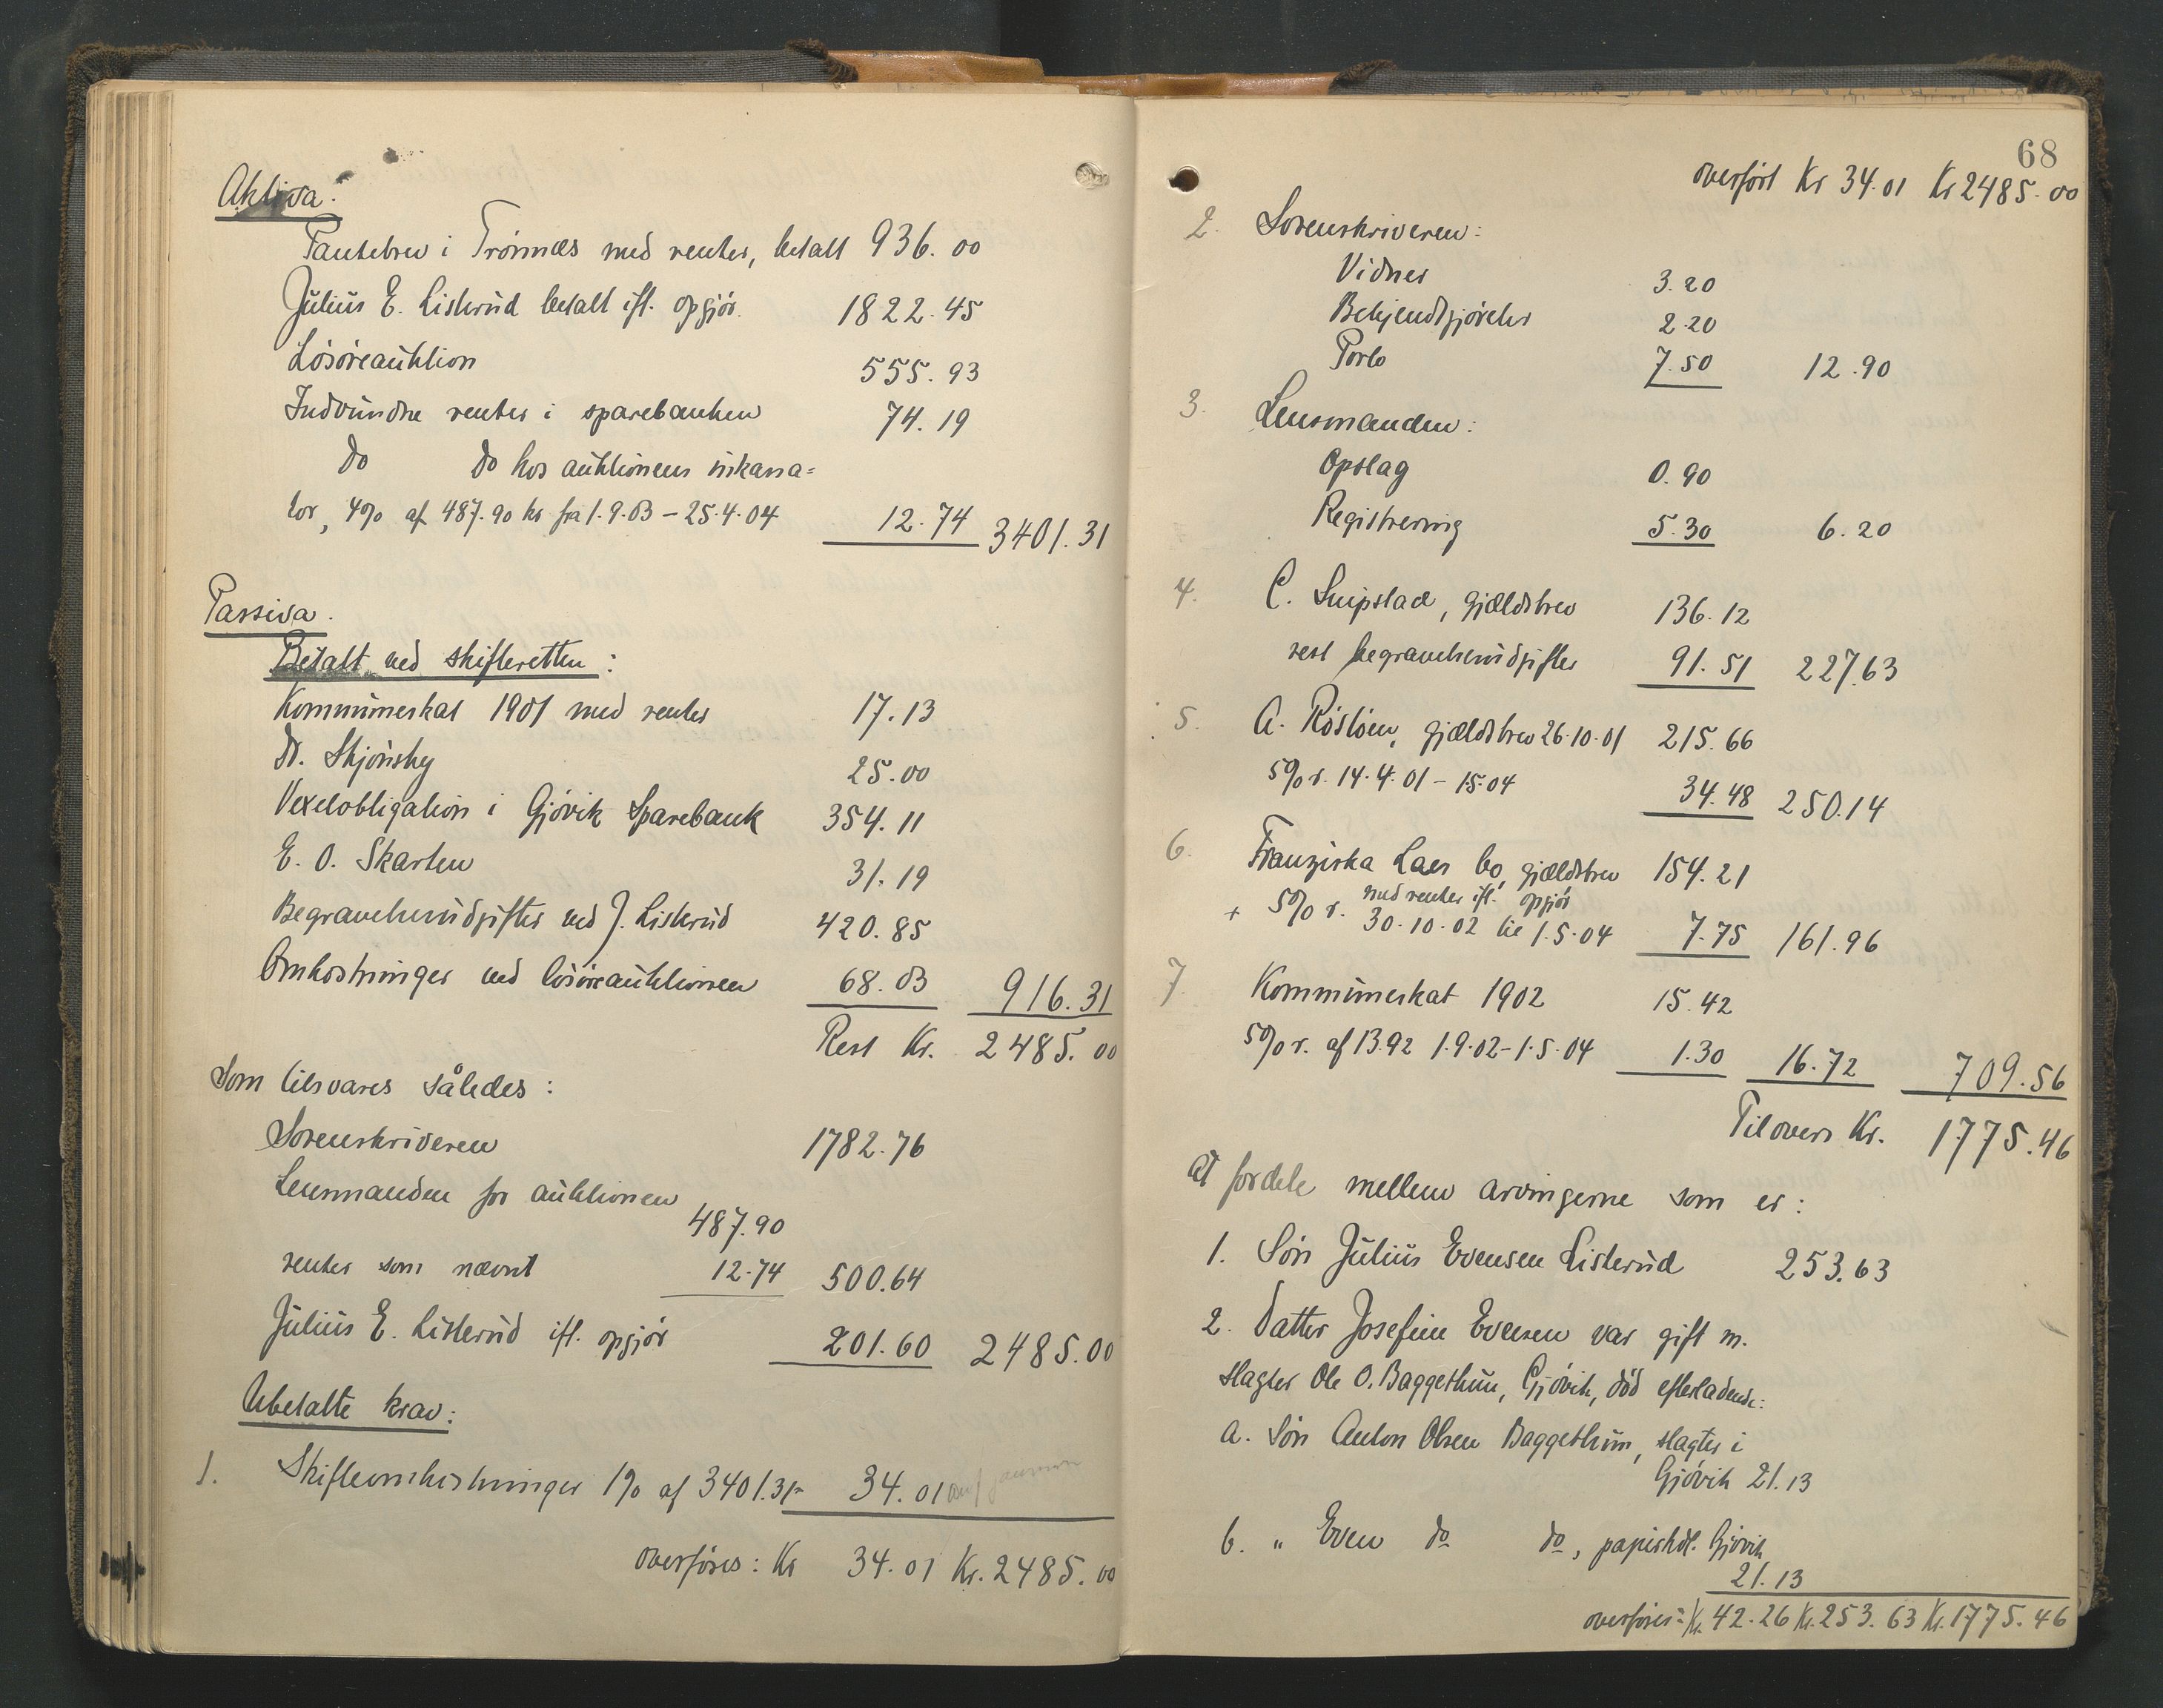 Aktiva:
Pantebrev i Trönnæs med renter, betalt 936.00
Julius E. Listerud betalt ifl. opgjör. 1822.45
Lösöreauktion 555.93
Indvundne renter i sparebanken 74.19
do do hos auktionens inkassa=
tor, 4% af 487.90 kr fra 1.9.03 – 25.4.04 12.74 3401.31
Passiva.
Betalt ved skifteretten:
Kommuneskat 1901 med renter 17.13
Dr. Skjönsby 25.00
Vexelobligation i Gjövik Sparebank 354.11
E. O. Skarten 31.19
Begravelsesudgifter ved J. Listerud 420.85
Omkostninger ved lösöreauktionen 68.03 916.31
Rest Kr. 2485.00
Som tilsvares således:
Sorenskriveren 1782.76
Lensmanden for auktionen
487.90
renter som nævnt 12.74 500.64
Julius E. Listerud ifl. opgjör 201.60 2485.00
Ubetalte krav:
1. Skifteomkostninger 1% af 3401.31 34.01
overföres: Kr 34.01 Kr. 2485.00
68
overfört Kr 34.01 Kr 2485.00
2. Sorenskriveren:
Vidner 3.20
Bekjendtgjörelser 2.20
Porto 7.50 12.90
3. Lensmanden:
Opslag 0.90
Registrering 5.30 6.20
4. C. Snipstad, gjældsbrev 136.12
rest begravelsesudgifter 91.51 227.63
5. A. Röslöen, gjældsbrev 26.10.01 215.66
5% r. 14.4.01 – 1.5.04 34.48 250.14
6. Franziska Laes bo, gjældsbrev 154.21
med renter ifl. opgjör
+ 5% r. 30.10.02 til 1.5.04 7.75 161.96
7. Kommuneskat 1902 15.42
5% r. af 13.92 1.9.02 – 1.5.04 1.30 16.72 709.56
Tilovers Kr. 1775.46
at fordele mellem arvingerne som er:
1. Sön Julius Evensen Listerud 253.63
2. Datter Josefine Evensen var gift m.
slagter Ole O. Baggethun, Gjövik, död efterladende:
a. Sön Anton Olsen Baggethun, slagter i
Gjövik 21.13
b. " Even do do, papirhdl. Gjövik
21.13
overföres: Kr. 42.26 Kr. 253.63 Kr. 1775.46